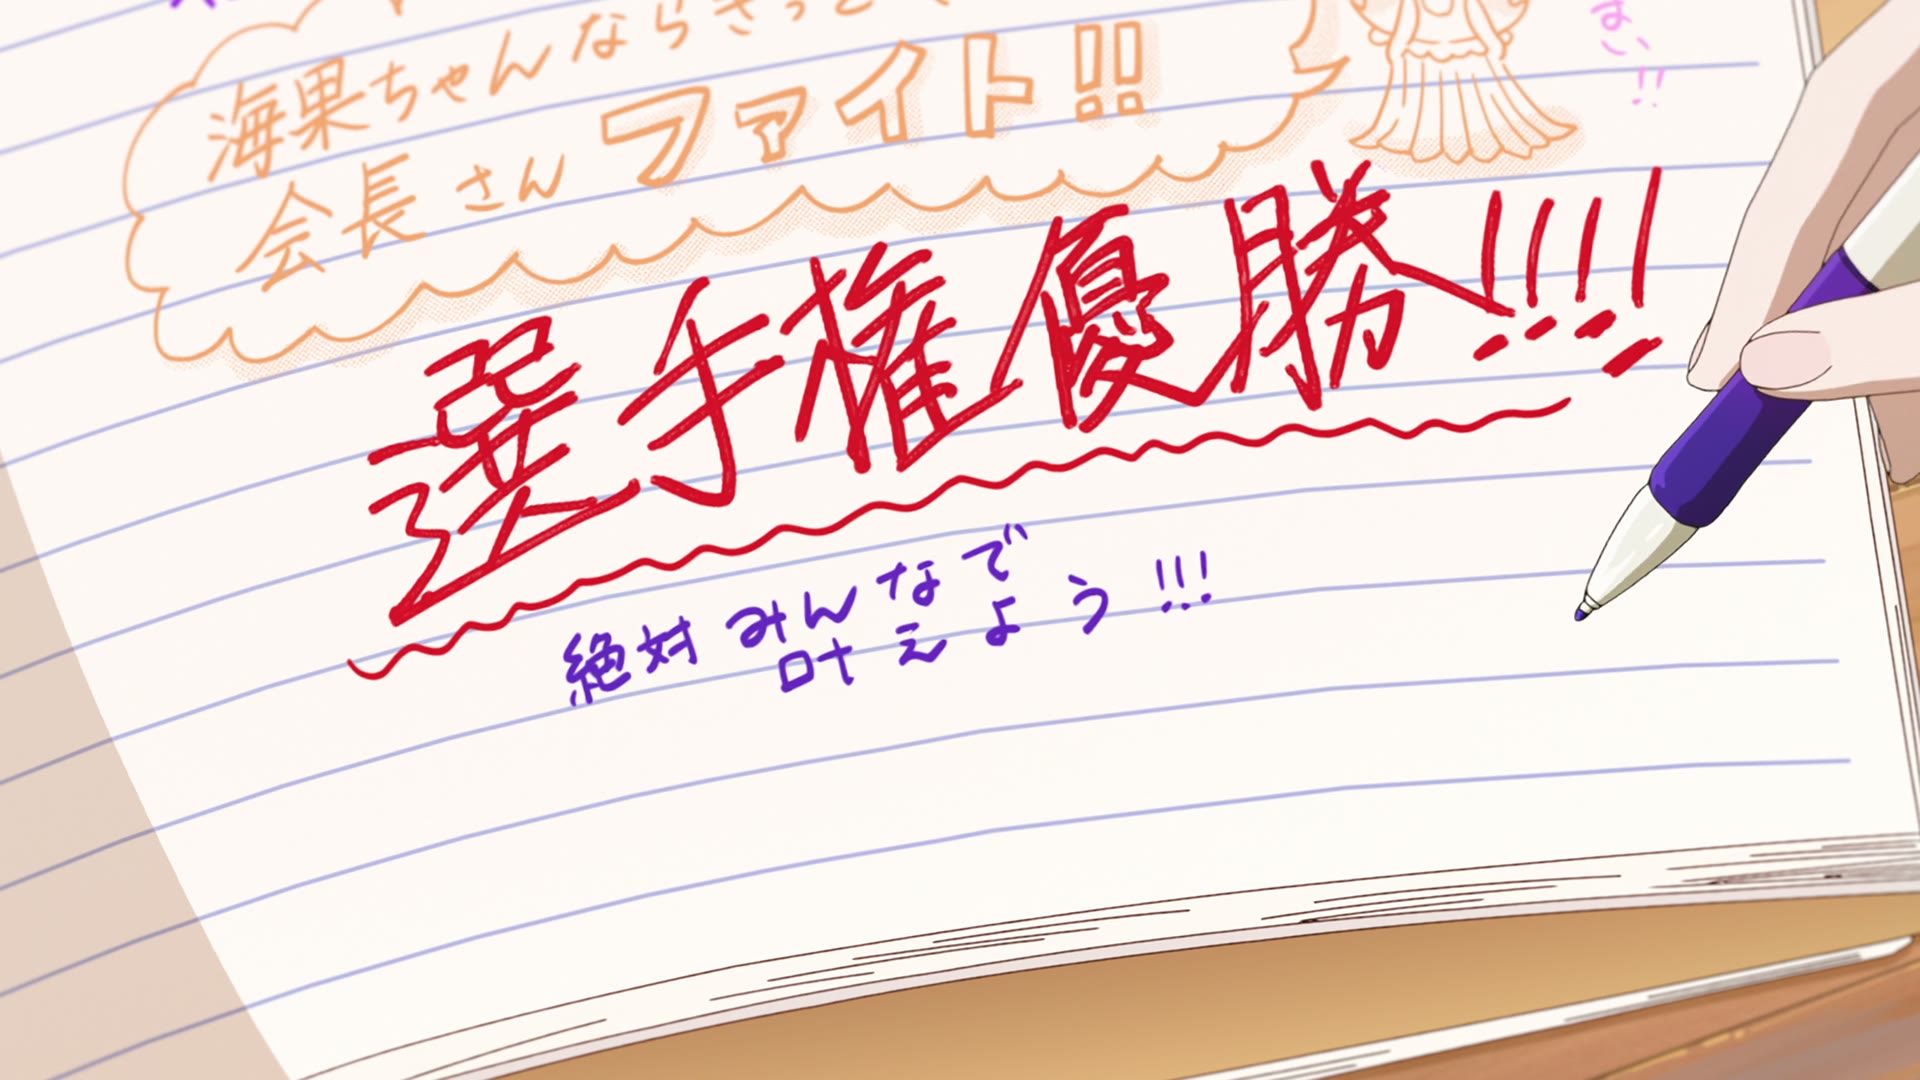 海果ちゃんならきっと
会長さん ファイト!!
はい!!
選手権優勝!!!!
絶対みんなで
叶えよう!!!